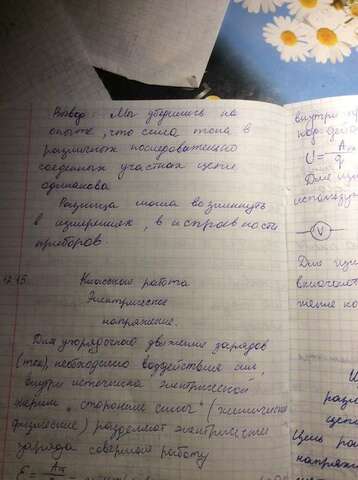 Вывод: Мы убедились на
опыте, что сила тока в
различных последовательно
соединых участках цепи
одинакова
Разница могла возникнуть
в измерениях, в исправности
приборов.
12.15
Классная работа
Электрическое
напряжение.
Для упорядоченого движения зарядов
(тока), необходимо воздействие сил,
внутри источника электрической
энергии "сторонние силы" (химические
физические) разделяют электрические
заряда совершая работу
внутри
U = A
q
Для
использу
V
Для
включают
жение
разли
цепи
Цель раб
напряжение